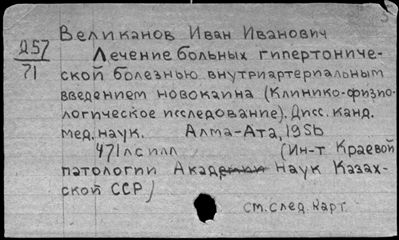 Великанов Иван Иванович
Д57
71
Лечение больных гипертониче-
ской болезнью внутриартериальным
введением новокаина (Клинико-физио-
логическое исследование). Дисс. канд.
мед. наук. Алма-Ата, 1956
471лс илл (Ин-т Краевой
патологии Академии Наук Казах-
ской ССР)
см. след. карт.